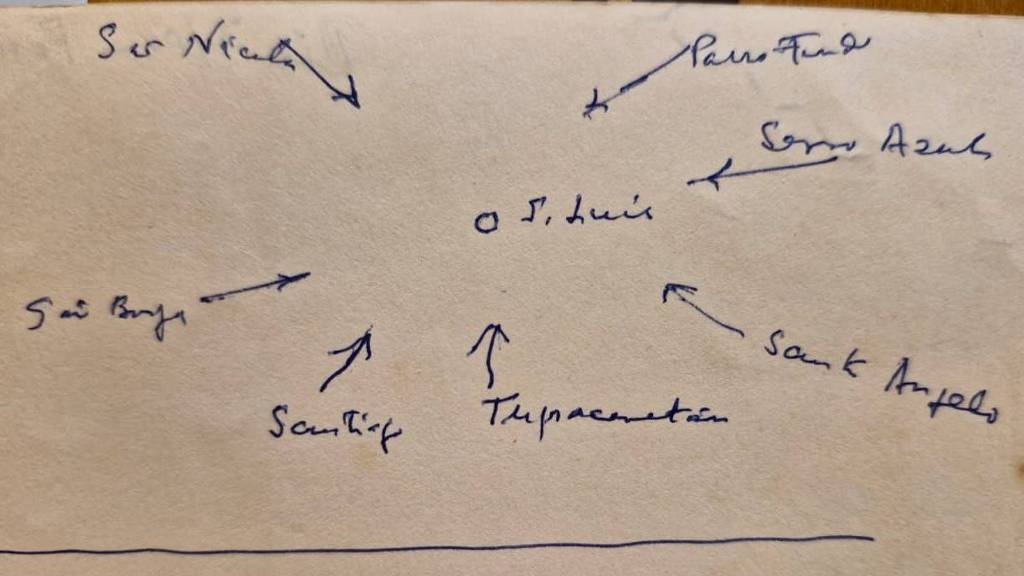 Sao Nicula
Passo Fundo
Serro Azul
S. Luis
São Borja
Sant Angelo
Santiago
Tupaceretan